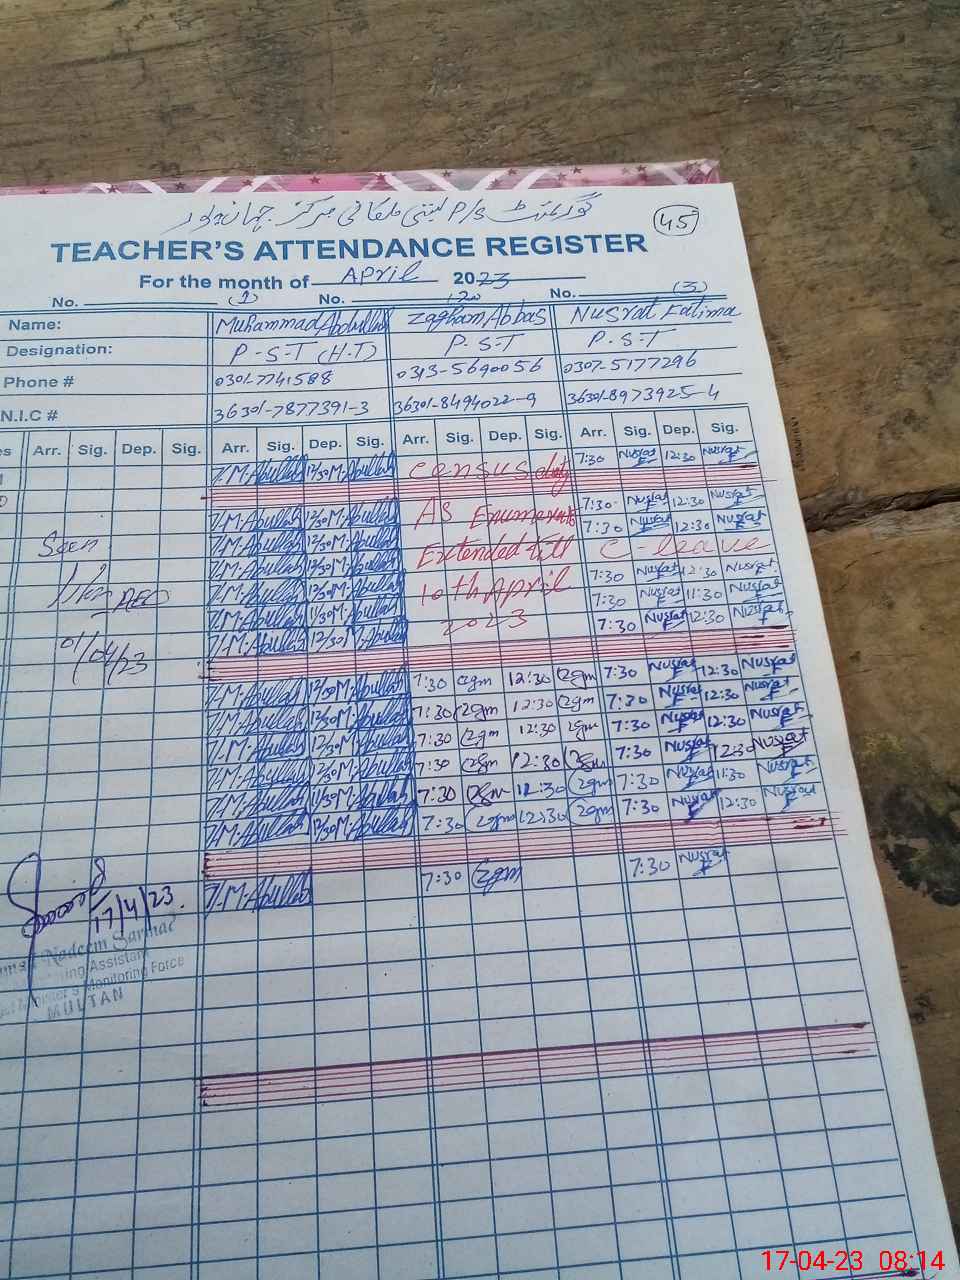 گورنمنٹ P/S بستی ملتانی مرکز جہانپور
45
TEACHER'S ATTENDANCE REGISTER
For the month of April 2023
No. (1) No. (2) No. (3)
Name: Muhammad Abdullah Zagham Abbas Nusrat Fatima
Designation: P-S-T (H.T) P.S.T P.S.T
Phone # 0301-7741588 0313-5690056 0307-5177296
N.I.C # 36301-7877391-3 36301-8494022-9 36301-8973925-4
es Arr. Sig. Dep. Sig. Arr. Sig. Dep. Sig. Arr. Sig. Dep. Sig. Arr. Sig. Dep. Sig.
7. M.Abullah 12/30 M.Abullah Census duty 7:30 Nusrat F 12:30 Nusrat F
7. M.Abullah 12/30 M.Abullah As Enumerator 7:30 Nusrat F 12:30 Nusrat F
7. M.Abullah 12/30 M.Abullah 7:30 Nusrat F 12:30 Nusrat F
Seen 7. M.Abullah 12/30 M.Abullah Extended till C-leave
7. M.Abullah 12/30 M.Abullah 10th April 7:30 Nusrat F 12:30 Nusrat F
AEO 7. M.Abullah 11/30 M.Abullah 7:30 Nusrat F 11:30 Nusrat F
01/04/23 7. M.Abullah 12/30 M.Abullah 2023 7:30 Nusrat F 12:30 Nusrat F
7. M.Abullah 12/30 M.Abullah 7:30 Zgm 12:30 Zgm 7:30 Nusrat F 12:30 Nusrat F
7. M.Abullah 12/30 M.Abullah 7:30 Zgm 12:30 Zgm 7:30 Nusrat F 12:30 Nusrat F
7. M.Abullah 12/30 M.Abullah 7:30 Zgm 12:30 Zgm 7:30 Nusrat F 12:30 Nusrat F
7. M.Abullah 12/30 M.Abullah 7:30 Zgm 12:30 Zgm 7:30 Nusrat F 12:30 Nusrat F
7. M.Abullah 11/30 M.Abullah 7:30 Zgm 11:30 Zgm 7:30 Nusrat F 11:30 Nusrat F
7. M.Abullah 12/30 M.Abullah 7:30 Zgm 12:30 Zgm 7:30 Nusrat F 12:30 Nusrat F
7. M.Abullah 7:30 Zgm 7:30 Nusrat F
17/4/23.
Nadeem Sarmad
Assistant
Monitoring Force
MULTAN
17-04-23 08:14